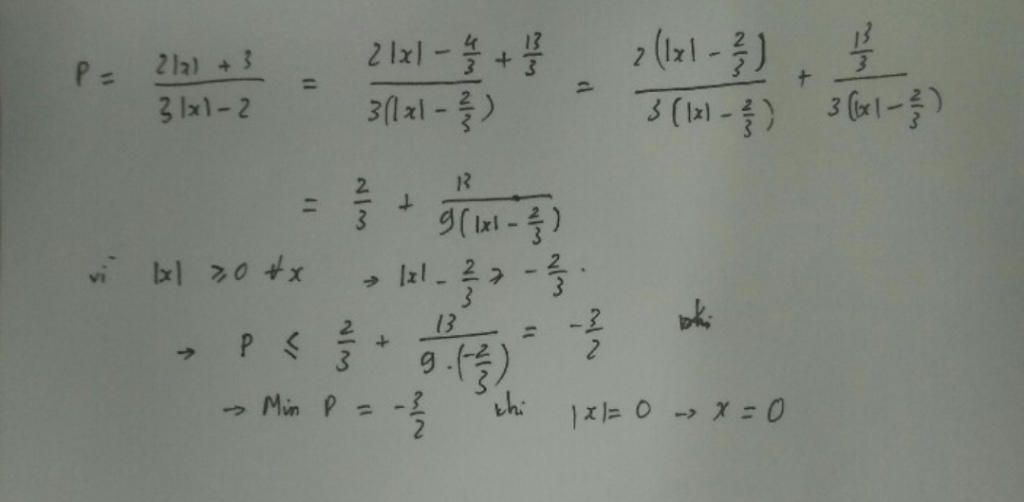 P = \frac{2|x| + 3}{3|x| - 2} = \frac{2|x| - \frac{4}{3} + \frac{13}{3}}{3(|x| - \frac{2}{3})} = \frac{2(|x| - \frac{2}{3})}{3(|x| - \frac{2}{3})} + \frac{\frac{13}{3}}{3(|x| - \frac{2}{3})}
= \frac{2}{3} + \frac{13}{9(|x| - \frac{2}{3})}
vì |x| ≥ 0 ∀x → |x| - \frac{2}{3} ≥ -\frac{2}{3}.
→ P ≤ \frac{2}{3} + \frac{13}{9 \cdot (-\frac{2}{3})} = -\frac{3}{2} khi
→ Min P = -\frac{3}{2} khi |x| = 0 → x = 0